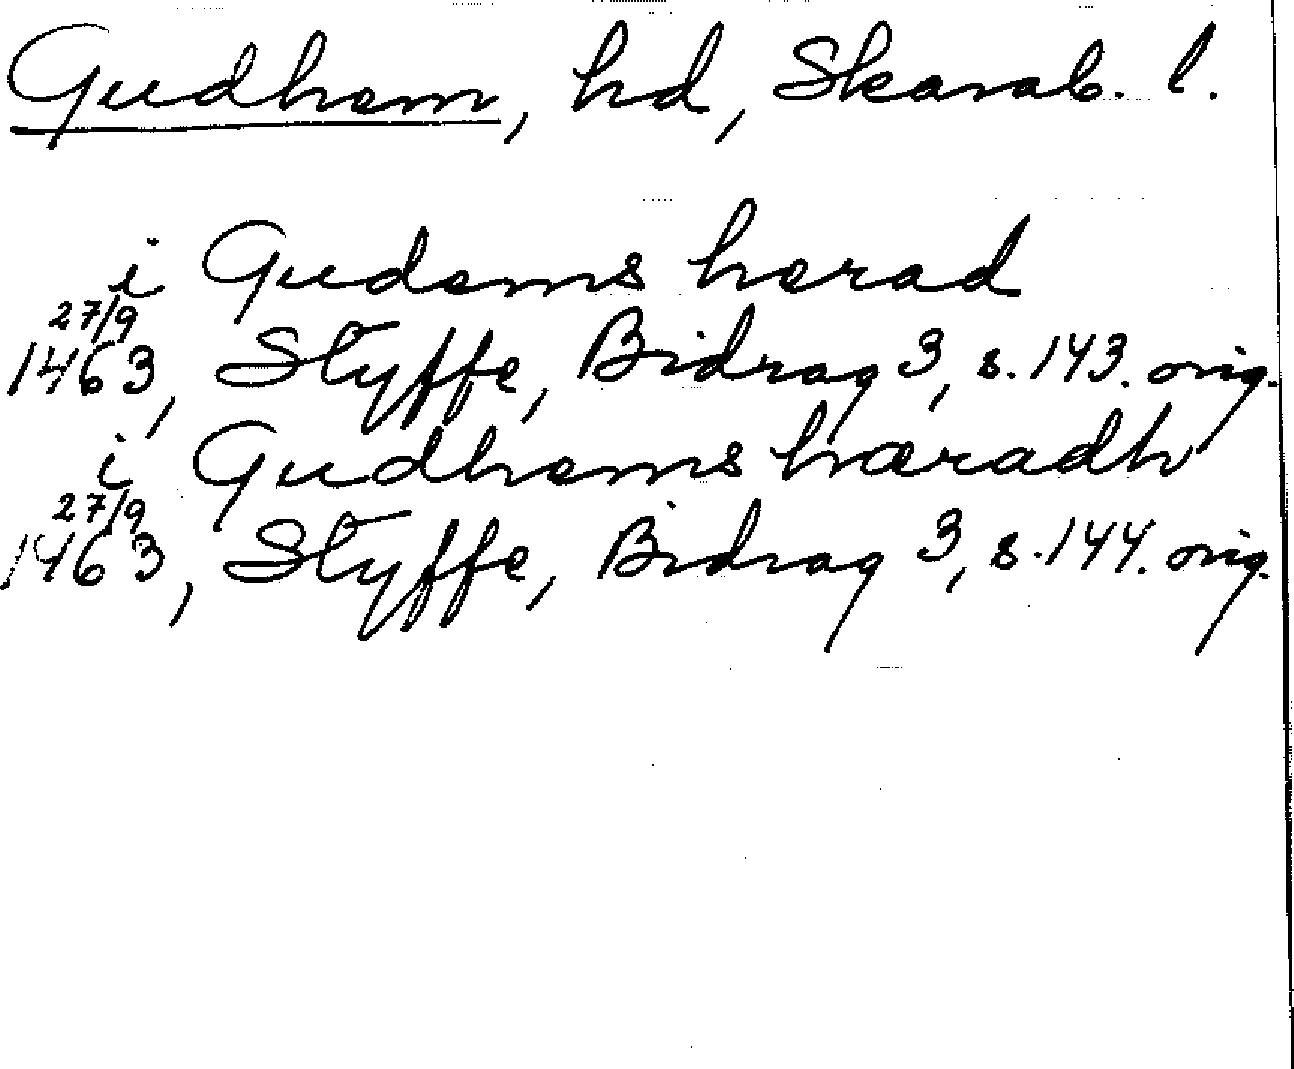 Gudhem, hd, Skarab. l.
i Gudems herad
27/9
1463, Styffe, Bidrag 3, s. 143. orig.
i Gudhems hæradh
27/9
1463, Styffe, Bidrag 3, s. 144. orig.